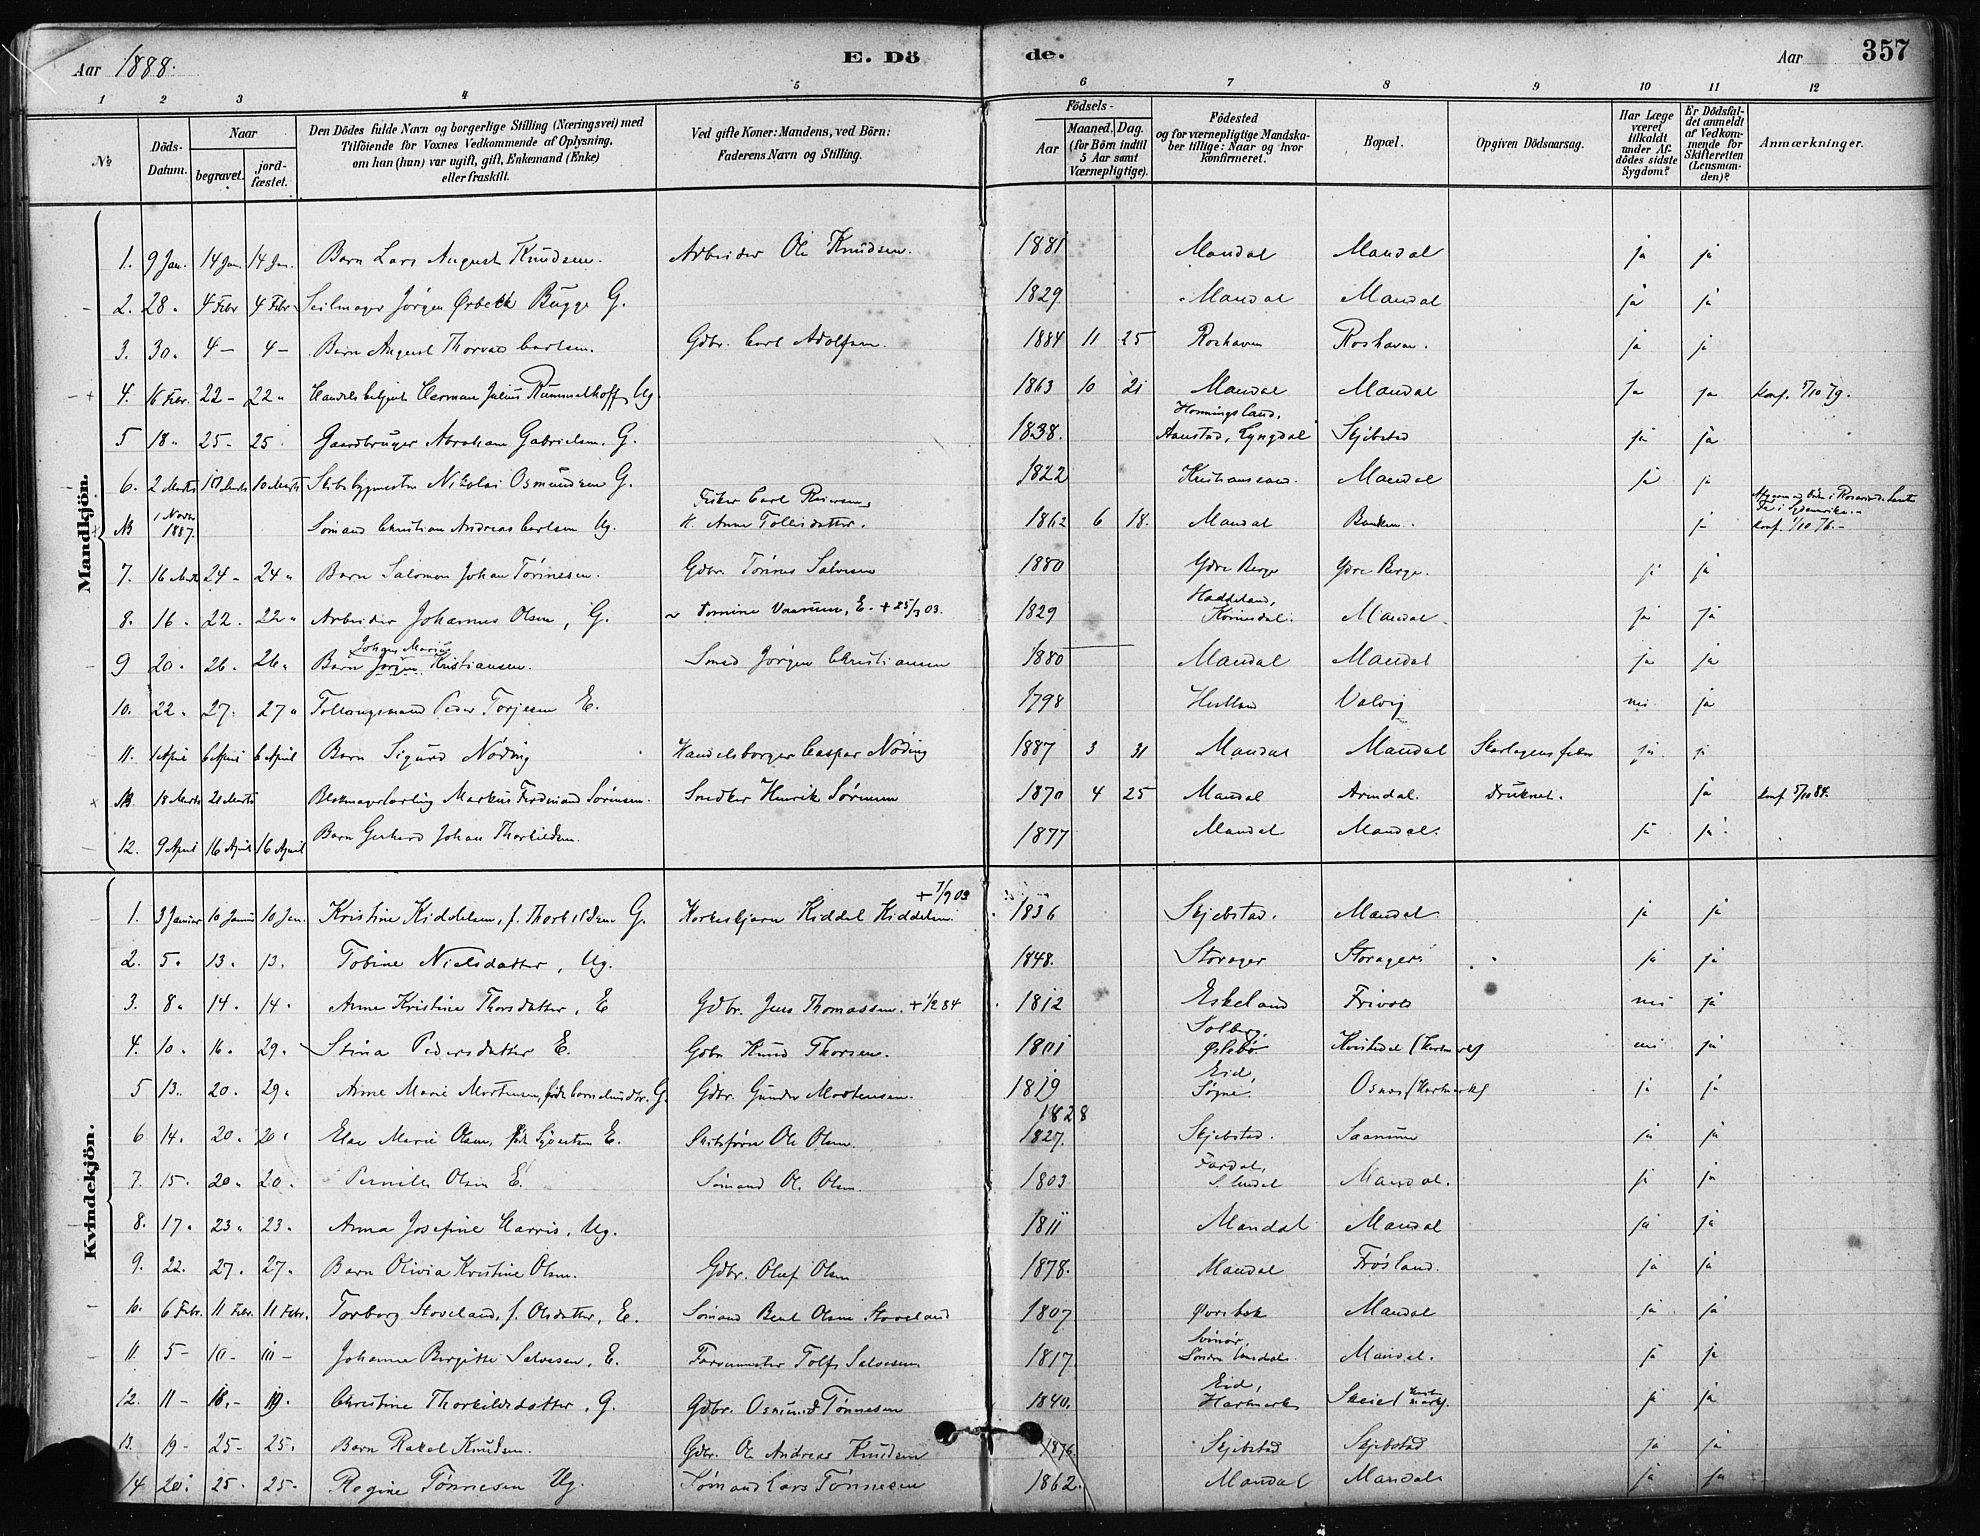 Aar 1888. E. Dö de. Aar 357
1 2 3 4 5 6 7 8 9 10 11 12
№ Döds-Datum. Naar begravet. jord-fæstet. Den Dödes fulde Navn og borgerlige Stilling (Næringsvei) med Tilföiende for Voxnes Vedkommende af Oplysning, om han (hun) var ugift, gift, Enkemand (Enke) eller fraskilt. Ved gifte Koner: Mandens, ved Börn: Faderens Navn og Stilling. Födsels- Aar Maaned. Dag. (for Börn indtil 5 Aar samt Værnepligtige). Födested og for værnepligtige Mandskaber tillige: Naar og hvor Konfirmeret. Bopæl. Opgiven Dödsaarsag. Har Læge været tilkaldt under Afdödes sidste Sygdom? Er Dödsfaldet anmeldt af Vedkommende for Skifteretten (Lensmanden)? Anmærkninger.
Mandkjön.
1. 9 Jan. 14 Jan. 14 Jan. Barn Lars August Knudsen. Arbeider Ole Knudsen. 1881 Mandal Mandal ja ja
2. 28 " 4 Febr 4 Febr Seilmager Jørgen Orbeck Bugge G. 1829 Mandal Mandal ja ja
3. 30 " 4 – 4 – Barn August Thorvald Carlsen. Gdbr. Carl Adolfsen. 1884 11 25 Roshaven Roshavn. ja ja
4. 16 Febr. 22 – 22 " Handelsbetjent Herman Julius Rummelhoff, Ug. 1863 10 21 Mandal Mandal ja ja Konf. 5/10 79.
5 18 " 25 – 25 Gaardbruger Abraham Gabrielsen. G. 1838. Honningsland, Aanstad, Lyngdal Skjebstad ja ja
6. 2 Marts 10 Marts 10 Marts Skibsbygmester Nikolai Osmundsen G. 1822 Kristianssand. Mandal ja ja
NB 1 Novbr 1887. Sømand Christian Andreas Carlsen Ug. Fisker Carl Reiersen, H. Anne Tollisdatter. 1862 6 18. Mandal Banken. ja Konf. 1/10 76. –
7. 16 Marts 24 – 24 " Barn Salomon Johan Tønnesen. Gdbr. Tønnes Salvesen 1880 Ydre Berge Ydre Berge. ja ja
8. 16 " 22. 22 " Arbeider Johannes Olsen, G. Tomine Vaarum, E. + 25/3 03. 1829 Haddeland, Konesdal. Mandal. ja ja
9 20 " 26 " 26 " Barn Jørgen Johan Marius Kristiansen. Smed Jørgen Christiansen 1880 Mandal Mandal ja ja
10. 22 " 27. 27 " Føderaadsmand Peder Torjesen E. 1798 Hesland Valvig nei ja
11. 1 April 6 April 6 April Barn Sigurd Nøding Handelsborger Caspar Nøding 1887 3 31 Mandal Mandal Skarlagensfeber ja ja
NB. 18 Marts 21 Marts Blokmagerlærling Markus Ferdinand Sørensen. Snedker Henrik Sørensen 1870 4 25 Mandal Arendal. Druknet. ja Konf. 5/10 84.
12. 9 April 16 April 16 April Barn Gerhard Johan Thorkildsen. 1877 Mandal Mandal. ja ja
Kvindekjön.
1. 3 Januar 10 Januar 10 Jan. Kristine Kiddelsen, f. Thorkildsen G. Korkeskjærer Kiddel Kiddelsen. + 7/9 03 1836 Skjebstad. Mandal ja ja
2. 5 " 13 " 13. Tobine Nielsdatter, Ug. 1848. Storager Storager. ja ja
3. 8 " 14 " 14 " Anne Kristine Thorsdatter, E Gdbr. Jens Thomassen. + 1/2 84 1812 Eskeland Frivold nei ja
4. 10 " 16. 29 " Stina Pedersdatter E. Gdbr. Knud Thorsen. 1801 Solberg. Øslebø Kvistedal (Hartmark) nei ja
5 13. 20. 29 " Anne Marie Mortensen, G. Gdbr. Gunder Mortensen. 1819 Eid, Søgne. Osnes (Hartmark) ja ja
6 14. 20. 20 " Elen Marie Olsen, født Sjursten E. Skibsfører Ole Olsen. 1828 1827. Skjebstad. Saanum ja ja
7. 15. 20 " 20. Pernille Olsen E. Sømand O. Olsen. 1803 Fardal, S. Undal Mandal. ja ja
8. 17 " 23 " 23. Anna Josefine Harris, Ug. 1811 Mandal Mandal ja ja
9. 22. 27. 27. Barn Olivia Kristine Olsen. Gdbr. Oluf Olsen 1878. Mandal Frøsland. ja ja
10. 6 Febr. 11 Febr. 11 Febr. Torborg Stoveland, f. Olsdatter, E. Sømand Bent Olsen Stoveland 1807 Øvrebøk Mandal ja ja
11 5 – 10 – 10 – Johanne Birgitte Salvesen, E. Farvemester Tolf Salvesen 1817 Svinør, Søndre Undal. Mandal. ja ja
12. 11 – 18. – 19. Christine Thorkildsdatter, G. Gdbr. Osmund Tønnesen 1840. Eid, Hartmark Skeie (Hartmark). ja ja
13. 19 – 25 – 25. Barn Rakel Knudsen. Gdbr. Ole Andreas Knudsen 1876. Skjebstad Skjebstad ja ja
14 20. 25. 25. Regine Tønnesen Ug. Sømand Lars Tønnesen 1862. Mandal Mandal ja ja